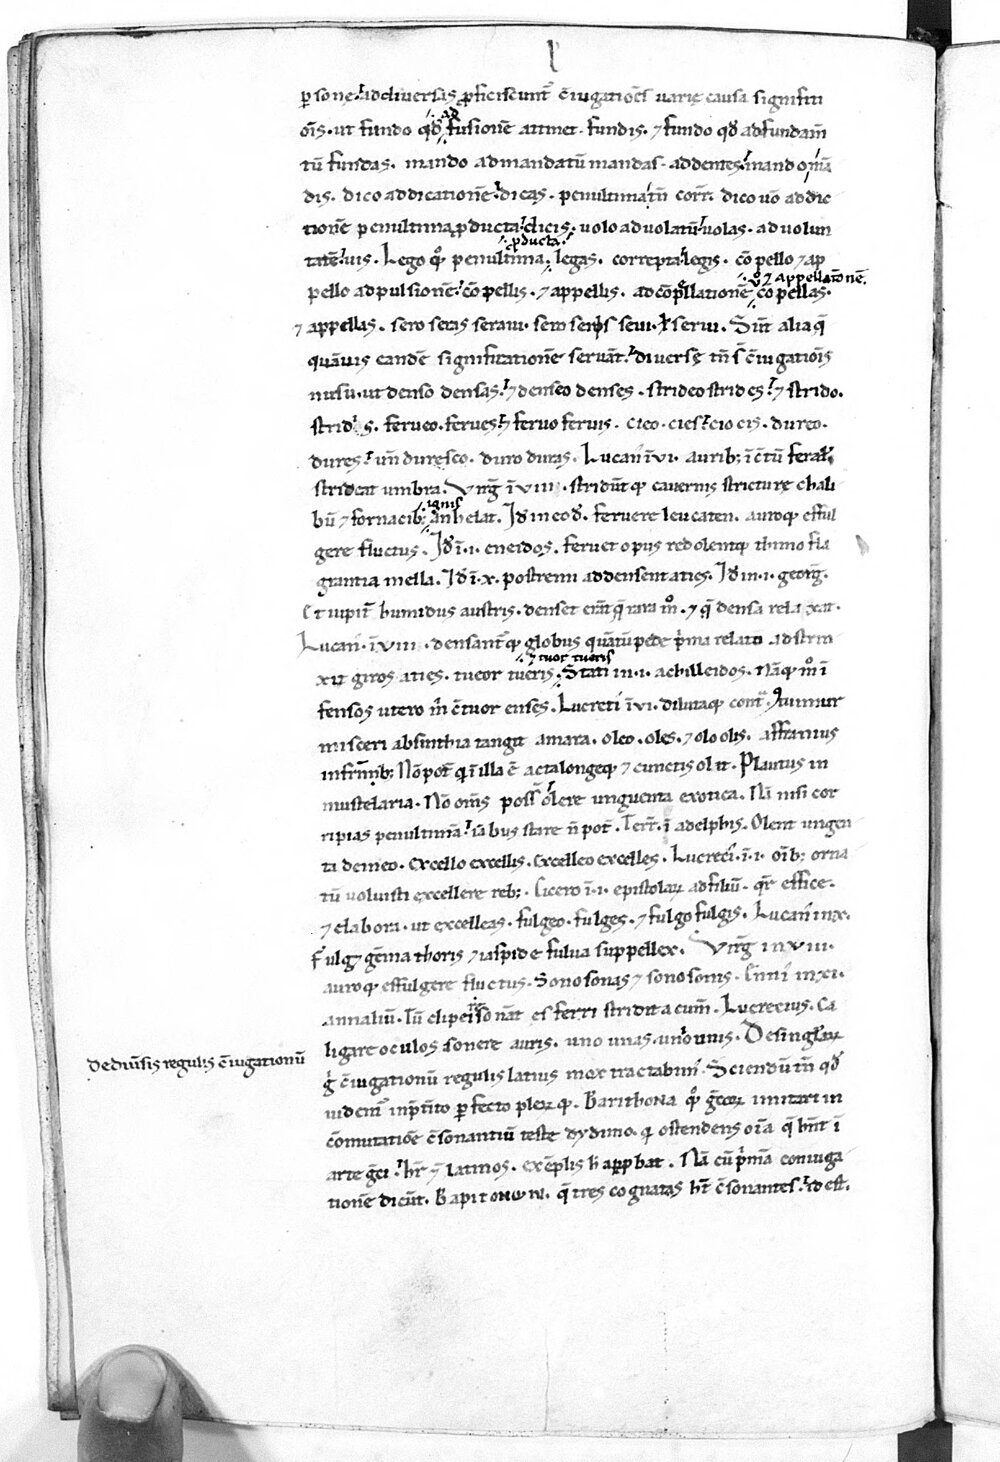 ꝑsone. ad diuersas ꝓficiscunt̄ c̄iugatiōes uarię causa significati
ōis. ut fundo qd̄ ad fusionē attinet. fundis. ⁊ fundo qd̄ ad fundam̄
tū fundas. mando ad mandatū mandas. ad dentes mando mā
dis. dico ad dicationē dicas. penultima tn̄ corr̄. dico uō ad dic
tionē penultima ꝓducta dicis. uolo ad uolatū uolas. ad uolun
tatē uis. Lego qn̄ penultima ꝓducta legas. correpta legis. cōpello ⁊ ap
pello ad pulsionē cōpellis. ⁊ appellis. ad cōpellationē uō ⁊ appellationē. cōpellas.
⁊ appellas. sero seras seraui. sero seris seui. ł serui. Sūt alia q̄
quāuis eandē significationē seruāt diuersę tn̄ s̄ c̄iugatiōis
inusu. ut denso densas ⁊ denseo denses. strideo strides ⁊ strido.
stridis. ferueo. ferues ⁊ feruo feruis. cieo. cies cio cis. dureo.
dures un̄ duresco. duro duras. Lucan̄ ī VI. aurib; īc̄tū feralē
strideat umbra. Virḡ ī VIII. stridūt q̨ cauernis stricturę chali
bū ⁊ fornacib; ignis anhelat. Id̄ in eod̄. feruere leucaten. auroq̨ efful
gere fluctus. Id̄ ī .I. eneidos. feruet opus redolentq̨ thimo fla
grantia mella. Id̄ ī .X. postremi addensent acies. Id̄ in .I. georḡ.
Et iupit̄ humidus austris. denset erāt q̄ rara m̊. ⁊ q̄ densa relaxat.
Lucan̄. ī VIII. densant̄ q̨ globus quātū pede p̄ma relato adstrin
xit giros acies. tueor tueris ⁊ tuor tueris. Stati in .I. achilleidos. Nāq̨ m̊ ī
fensos utero m̄ c̄tuor enses. Lucreti ī VI. dilutaq̨ cont̄ꝯtuimur
misceri absinthia tangit amara. oleo. oles. ⁊ olo olis. affranius
in fr̄ib; Nō pot̄ q̄ ī illa ē acta longeq̨ ⁊ cunctis olit. Plautus in
mustelaria. Nō om̄s poss̄ olere unguenta exotica. Nā nisi cor
ripias penultimā iābus stare n̄ pot̄. Terr̄. ī adelphis. Olent ungen
ta de meo. Excello excellis. Excelleo excelles. Lucreti .ī .I. oīb; orna
tū uoluisti excellere reb;. Cicero ī .I. epistolaꝝ ad filiū. qr̄ effice.
⁊ elabora. ut excelleas. fulgeo. fulges. ⁊ fulgo fulgis. Lucan̄ in X.
Fulgꝫ gēma thoris ⁊ iaspide fulua suppellex. Virḡ in VIII.
auroq̨ effulgere fluctus. Sono sonas ⁊ sono sonis. Enni in XI.
annaliū. Tū clipei resonāt es ferri stridit acum̄. Lucrecius. ca
ligare oculos sonere auris. uno unas. uno unis. De singlaꝝ
g̊ c̄iugationū regulis latius mox tractabim̄. Sciendū tn̄ qd̄
De diuersis regulis c̄iugationū
uident̄ in p̄tito ꝑfecto pleꝝq̨. Barithona qn̄ grecoꝝ imitari in
c̄mutatiōe c̄sonantiū teste dydimo. qi ostendens oīa q̄ hn̄t ī
arte greci hr̄e ⁊ latinos. exēplis h̄ approbat. Nā cū p̄mā coniuga
tionē dicūt. Baritonωn. q̄ tres cognatas ht̄ c̄sonantes. id est.